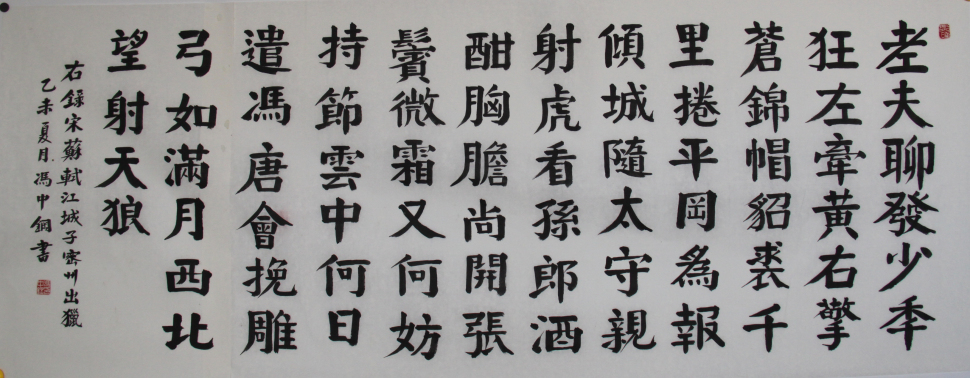 老夫聊發少年
狂左牽黃右擎
蒼錦帽貂裘千
里捲平岡為報
傾城隨太守親
射虎看孫郎酒
酣胸膽尚開張
鬢微霜又何妨
持節雲中何日
遣馮唐會挽雕
弓如滿月西北
望射天狼
右錄宋蘇軾江城子密州出獵
乙未夏月馮中鋼書